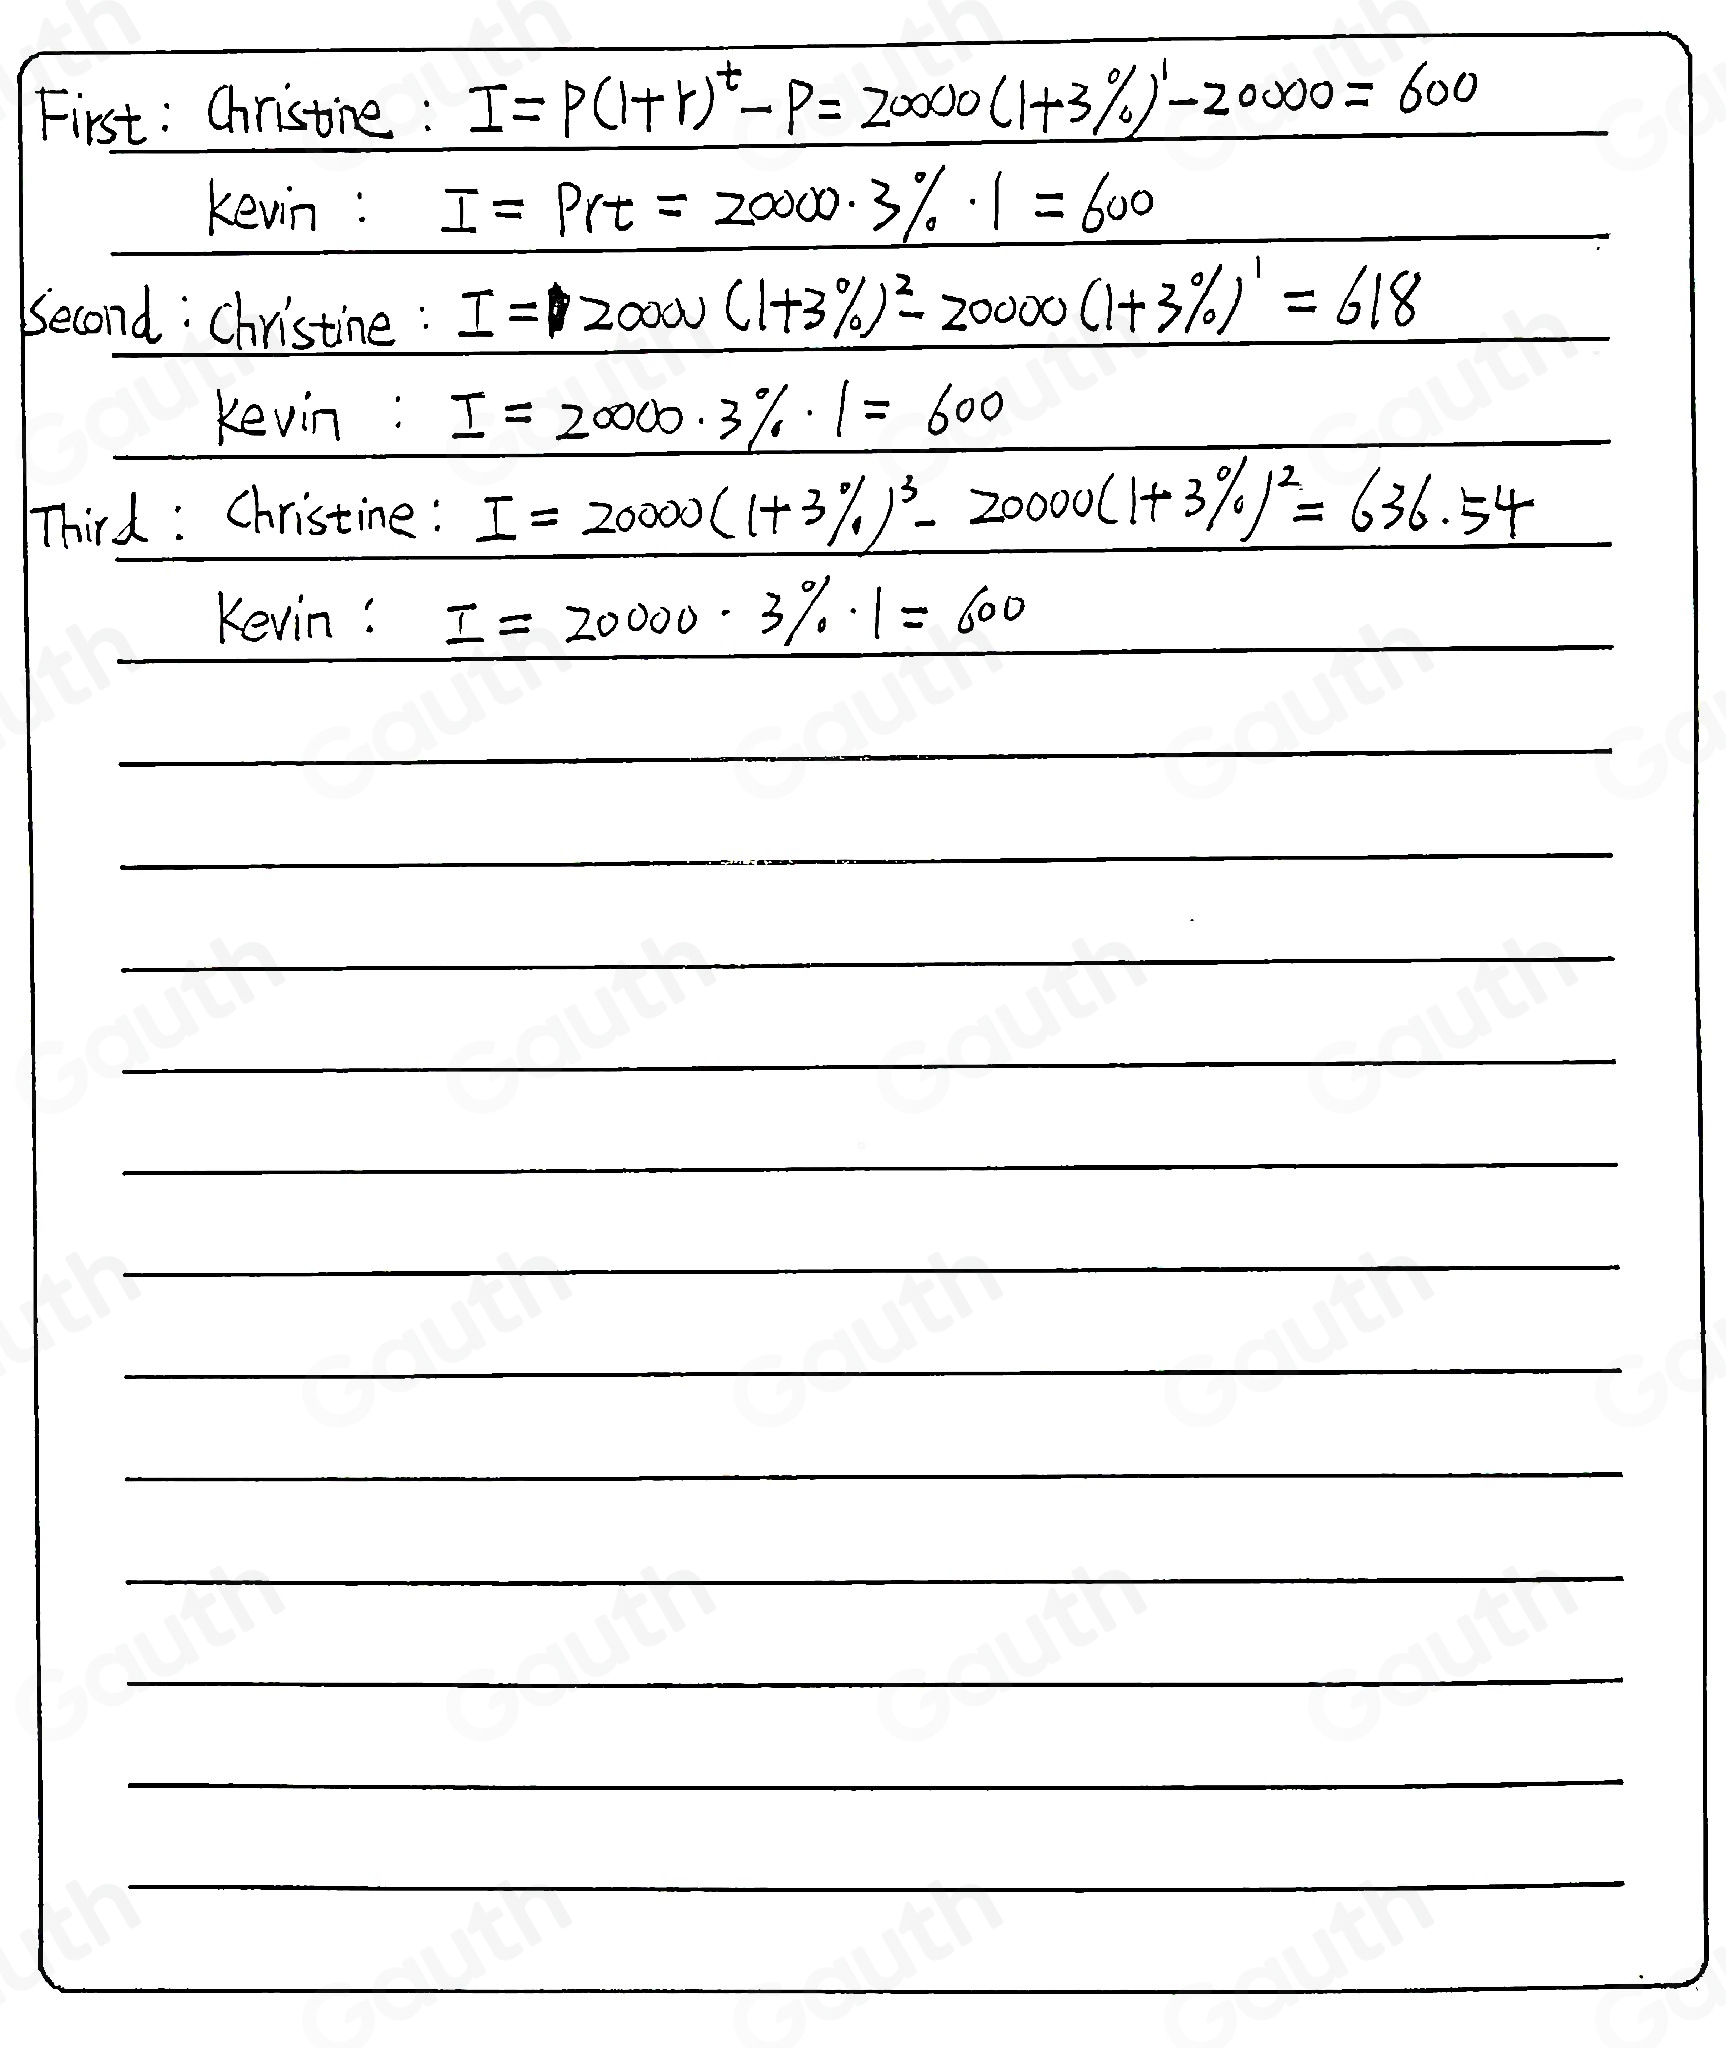 First: Christine: I = P(1+r)^t - P = 20000(1+3%)^1 - 20000 = 600
Kevin: I = Prt = 20000·3%·1 = 600
Second: Christine: I = 20000(1+3%)^2 - 20000(1+3%)^1 = 618
Kevin: I = 20000·3%·1 = 600
Third: Christine: I = 20000(1+3%)^3 - 20000(1+3%)^2 = 636.54
Kevin: I = 20000·3%·1 = 600